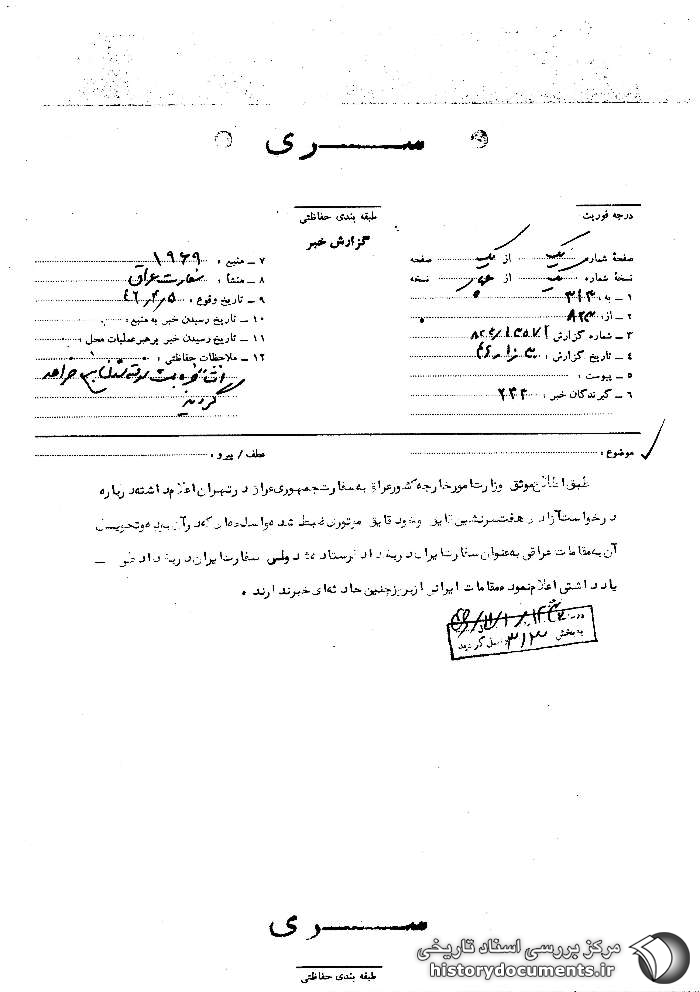 ســـری
درجه فوریت
طبقه بندی حفاظتی
گزارش خبر
صفحهٔ شماره یک از یک صفحه
نسخهٔ شماره یک از چهار نسخه
۱ ـ به : ۳۱۳
۲ ـ از : ۸۲۳
۳ ـ شمارهٔ گزارش
۴ ـ تاریخ گزارش :
۵ ـ پیوست :
۶ ـ گیرندگان خبر :
۷ ـ منبع : ۱۹۶۹
۸ ـ منشأ : سفارت عراق
۹ ـ تاریخ وقوع :
۱۰ ـ تاریخ رسیدن خبر به منبع :
۱۱ ـ تاریخ رسیدن خبر برهبر عملیات محل :
۱۲ ـ ملاحظات حفاظتی :
خواهد
گردید
موضوع :
عطف / پیرو :
طبق اطلاع موثق وزارت امور خارجه کشور عراق به سفارت جمهوری عراق در تهران اعلام داشته درباره
درخواست آزادی هفت سرنشین قایق و خود قایق موتوری ضبط شده و اسلحه‌هائی که در آن بوده و تحویل
آن به مقامات عراقی به عنوان سفارت ایران در بغداد فرستاده شد ولی سفارت ایران در بغداد طی ـ
یادداشتی اعلام نموده مقامات ایرانی از بروز چنین حادثه‌ای خبر ندارند .
به بخش ۳۱۳ گردید
ســـری
طبقه بندی حفاظتی
مرکز بررسی اسناد تاریخی
historydocuments.ir